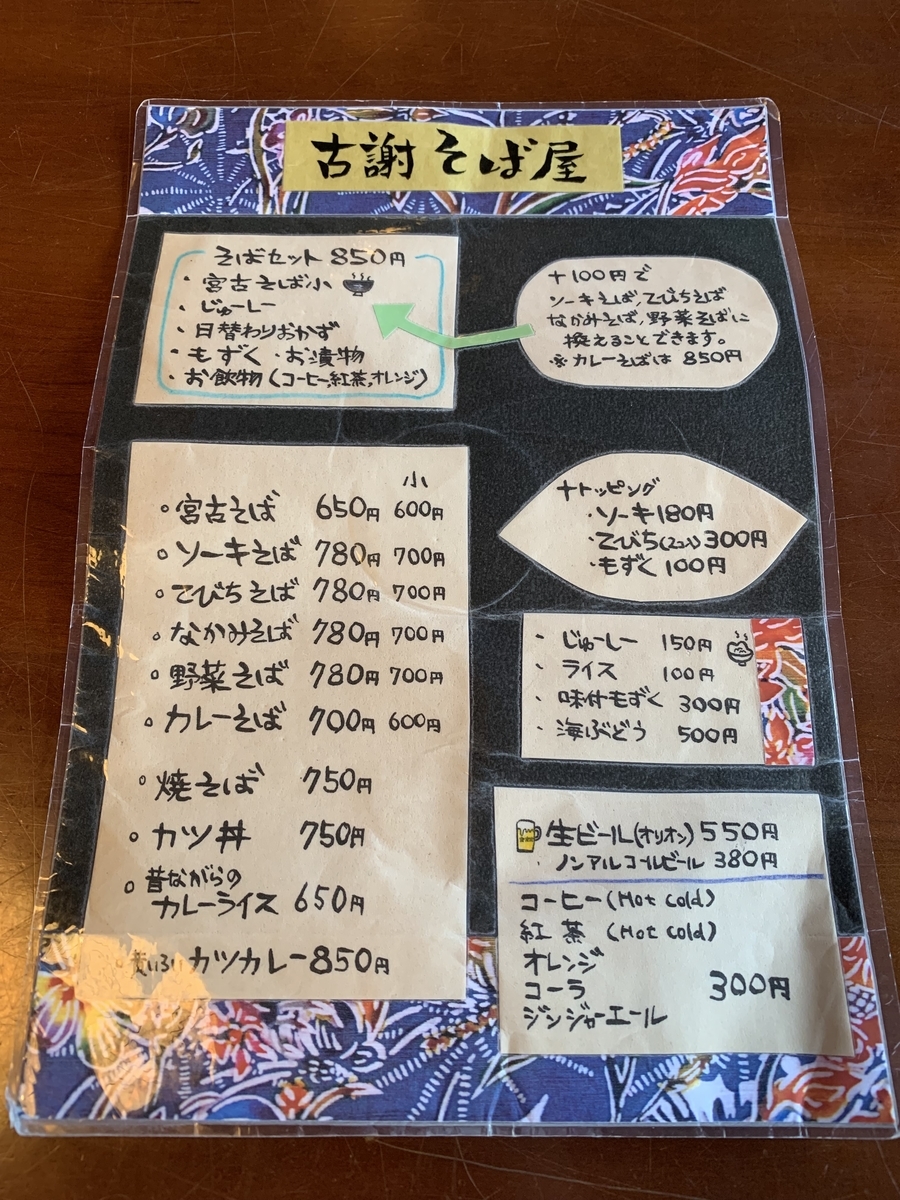 古謝そば屋
そばセット 850円
・宮古そば小
・じゅーしー
・日替わりおかず
・もずく ・お漬物
・お飲物(コーヒー,紅茶,オレンジ)
+100円で
ソーキそば,てびちそば
なかみそば,野菜そばに
換えることできます。
※カレーそばは 850円
小
○宮古そば 650円 600円
○ソーキそば 780円 700円
○てびちそば 780円 700円
○なかみそば 780円 700円
○野菜そば 780円 700円
○カレーそば 700円 600円
○焼そば 750円
○カツ丼 750円
○昔ながらの
カレーライス 650円
黄いろいカツカレー 850円
+トッピング
・ソーキ 180円
・てびち(2コ入) 300円
・もずく 100円
・じゅーしー 150円
・ライス 100円
・味付もずく 300円
・海ぶどう 500円
生ビール(オリオン) 550円
・ノンアルコールビール 380円
コーヒー(Hot Cold)
紅茶 (Hot Cold)
オレンジ
コーラ 300円
ジンジャーエール